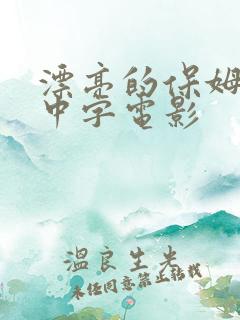 漂亮的保姆
中字电影
温良生米
未经同意禁止转载